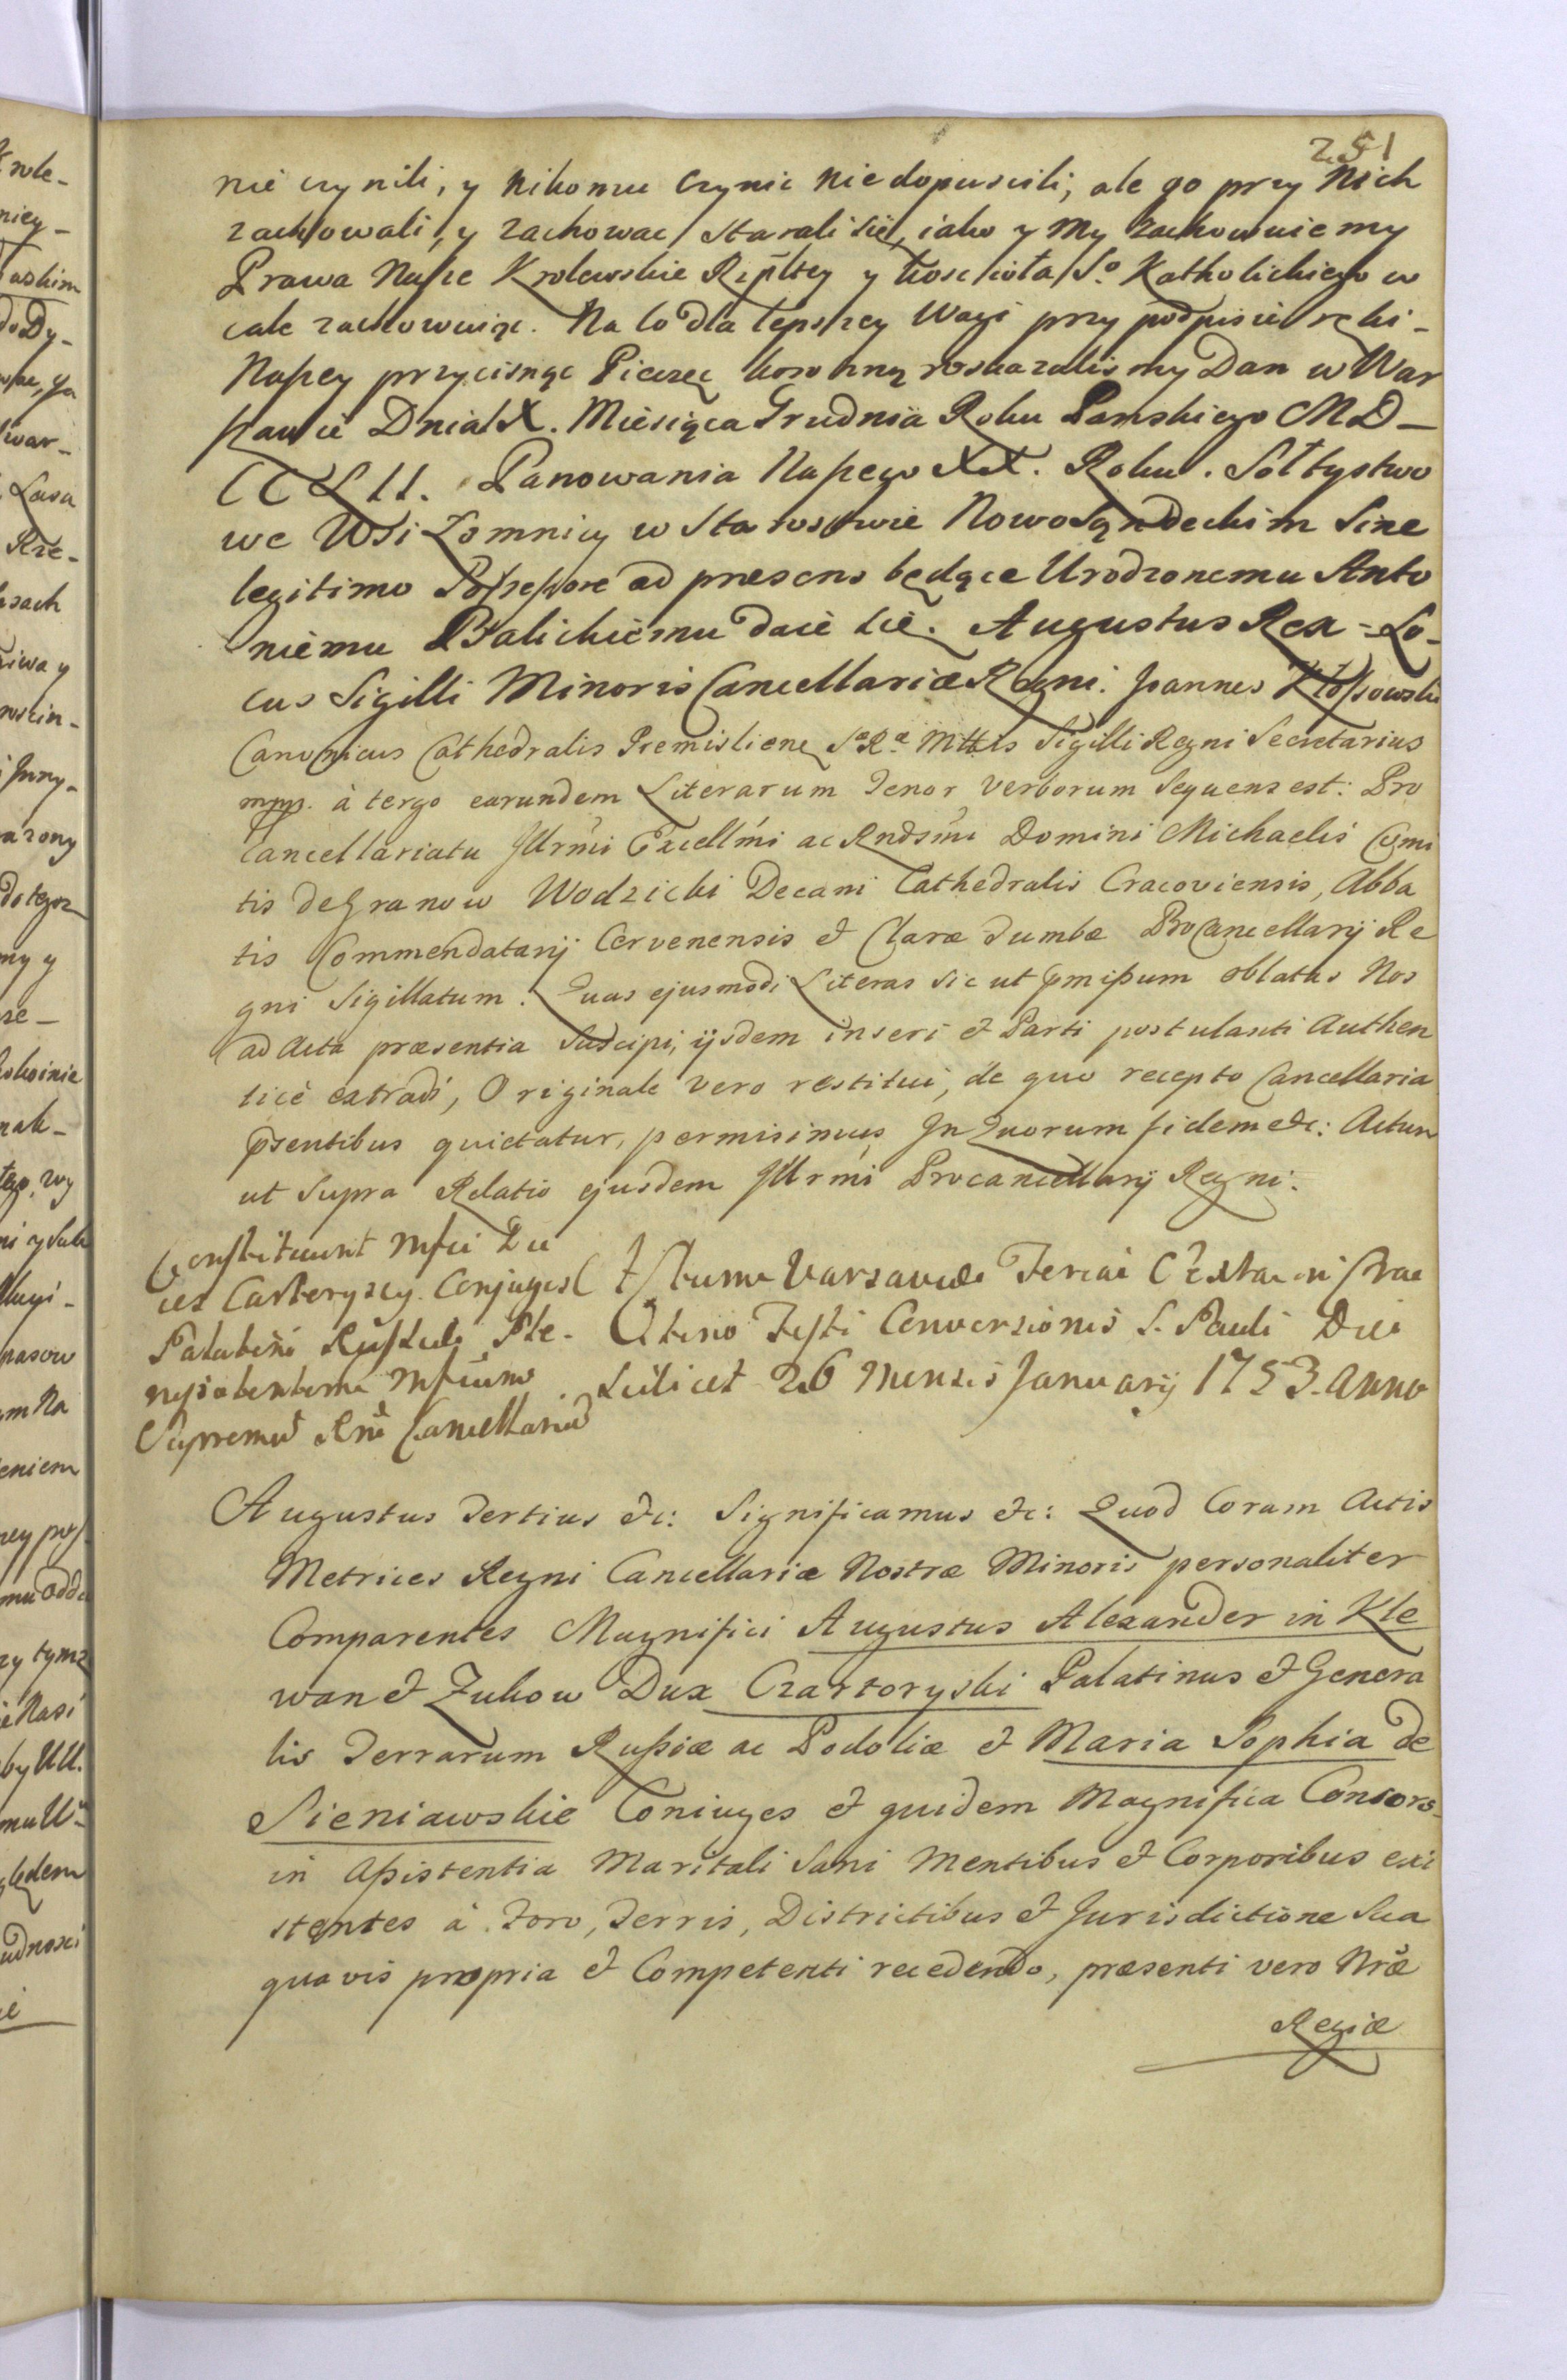 251
nie czynili, y nikomu czynic niedopuscili, ale go przy Nich
zachowali, y zachowac starali się, iako y my zachowuiemy
Prawa Nasze Krolewskie Rzpltey y kosciola So. Katholickiego w
cale zachowuiąc. Na to dla lepszey Wagi przy podpisie ręki-
Naszey przycisnąc Pieczęc koronną roskazalismy Dan w War
szawie Dnia X. Miesiąca Grudnia Roku Panskiego MD-
CCLII. Panowania Naszego XX. Roku. Sołtystwo
we Wsi Łomnicy w Starostwie Nowosądeckim Sine
legitimo Possessore ad praesens będące Urodzonemu Anto
niemu Bialickiemu daie się. Augustus Rex = Lo-
cus Sigilli Minoris Cancellariæ Regni. Joannes Kłossowski
Canonicus Cathedralis Premislien SæRæ Mttis Sigilli Regni Secretarius
mpp. à tergo earundem Literarum Tenor verborum sequens est: Pro
cancellariatu Illrmi Excellmi ac Rndsmi Domini Michaelis Comi
tis de Granow Wodzicki Decani Cathedralis Cracoviensis, Abba
tis Commendatarij Cervenensis & Claræ Tumbæ ProCancellarij Re
gni Sigillatum. Quas ejusmodi Literas sic ut pmissum oblatas Nos
ad Acta præsentia suscipi, ijsdem inseri & Parti postulanti Authen
ticè extradi, Originale vero restitui, de quo recepto Cancellaria
psentibus quietatur, permisimus. In Quorum fidem &c: Actum
ut supra Relatio ejusdem Illrmi Procancellarij Regni.
Constituunt Mfci Du
ces Czartoryscy. Conjuges
Palatini Russiæ Ple-
nipotentem Mfcum
Supremum Rni Cancellarium
Actum Varsaviæ Feria Sexta in Cras
tino Festi Conversionis S. Pauli Die
scilicet 26 Mensis Januarij 1753. Anno
Augustus Tertius &c: Significamus &c: Quod Coram Actis
Metrices Regni Cancellariæ Nostræ Minoris personaliter
Comparentes Magnifici Augustus Alexander in Kle
wan & Zukow Dux Czartoryski Palatinus & Genera
lis Terrarum Russiæ ac Podoliæ & Maria Sophia de
Sieniawskie Coniuges & quidem Magnifica Consors
in Assistentia Maritali Sani Mentibus & Corporibus exi
stentes à Foro, Terris, Districtibus & Jurisdictione Sua
quavis propria & Competenti recedendo, præsenti vero Nræ
Regiæ